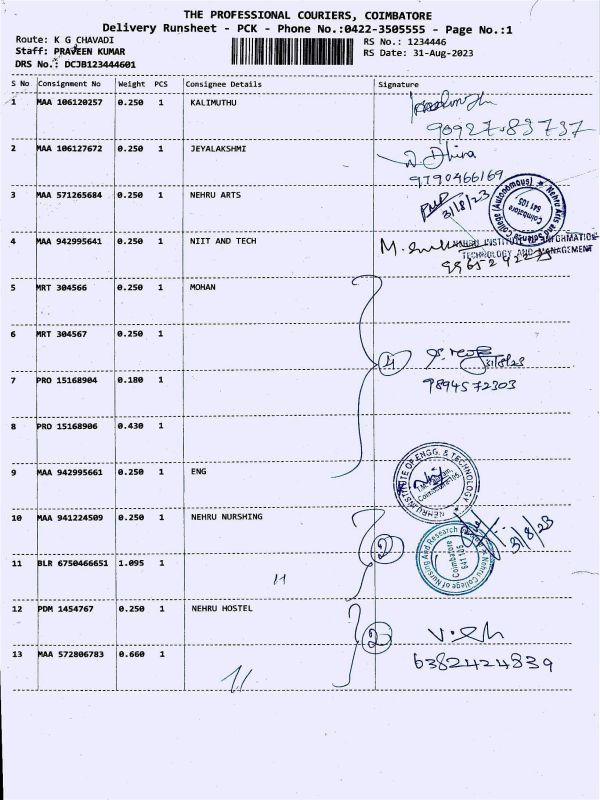 THE PROFESSIONAL COURIERS, COIMBATORE
Delivery Runsheet - PCK - Phone No.:0422-3505555 - Page No.:1
Route: K G CHAVADI
RS No.: 1234446
Staff: PRAVEEN KUMAR
RS Date: 31-Aug-2023
DRS No.: DCJB123444601
S No Consignment No Weight PCS Consignee Details Signature
1 MAA 106120257 0.250 1 KALIMUTHU
90927-83737
2 MAA 106127672 0.250 1 JEYALAKSHMI
9790466169
3 MAA 571265684 0.250 1 NEHRU ARTS
31/8/23
Nehru Arts and Science College (Autonomous)
Coimbatore
641 105
4 MAA 942995641 0.250 1 NIIT AND TECH
NEHRU INSTITUTE OF INFORMATION
TECHNOLOGY AND MANAGEMENT
5 MRT 304566 0.250 1 MOHAN
6 MRT 304567 0.250 1
4
31/8/23
7 PRO 15168904 0.180 1
9894572303
8 PRO 15168906 0.430 1
9 MAA 942995661 0.250 1 ENG
NEHRU INSTITUTE OF ENGG. & TECHNOLOGY
10 MAA 941224509 0.250 1 NEHRU NURSHING
2
31/8/23
Nehru College of Nursing And Research
Coimbatore
641 105
11 BLR 6750466651 1.095 1
11
12 PDM 1454767 0.250 1 NEHRU HOSTEL
2
13 MAA 572806783 0.660 1
6382424839
11